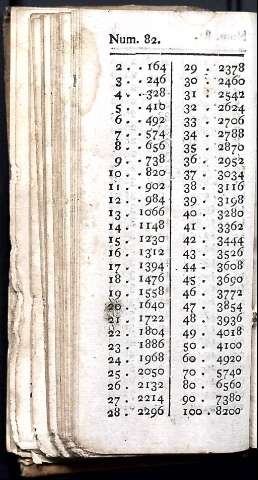 Num. 82.
2 . . 164
3 . . 246
4 . . 328
5 . . 410
6 . . 492
7 . . 574
8 . . 656
9 . . 738
10 . . 820
11 . . 902
12 . . 984
13 . 1066
14 . 1148
15 . 1230
16 . 1312
17 . 1394
18 . 1476
19 . 1558
20 . 1640
21 . 1722
22 . 1804
23 . 1886
24 . 1968
25 . 2050
26 . 2132
27 . 2214
28 . 2296
29 . 2378
30 . 2460
31 . 2542
32 . 2624
33 . 2706
34 . 2788
35 . 2870
36 . 2952
37 . 3034
38 . 3116
39 . 3198
40 . 3280
41 . 3362
42 . 3444
43 . 3526
44 . 3608
45 . 3690
46 . 3772
47 . 3854
48 . 3936
49 . 4018
50 . 4100
60 . 4920
70 . 5740
80 . 6560
90 . 7380
100 . 8200